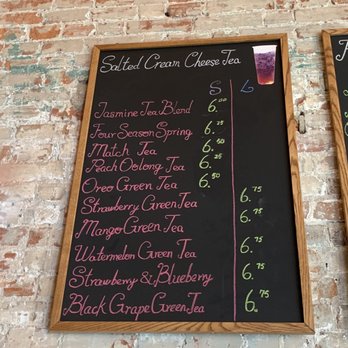 Salted Cream Cheese Tea
S L
Jasmine Tea Blend 6.00
Four Season Spring 6.25
Match Tea 6.50
Peach Oolong Tea 6.25
Oreo Green Tea 6.50
Strawberry Green Tea 6.75
Mango Green Tea 6.75
Watermelon Green Tea 6.75
Strawberry & Blueberry 6.75
Black Grape Green Tea 6.75